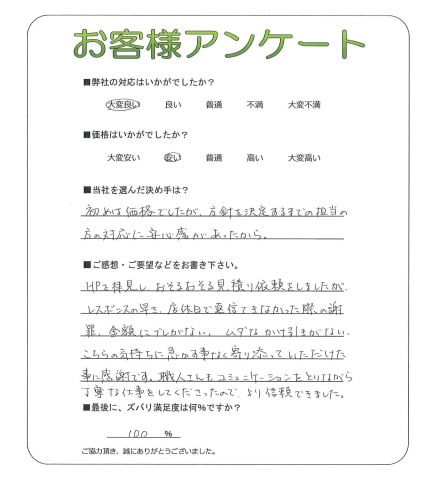 お客様アンケート
■弊社の対応はいかがでしたか？
大変良い 良い 普通 不満 大変不満
■価格はいかがでしたか？
大変安い 安い 普通 高い 大変高い
■当社を選んだ決め手は？
初めは価格でしたが、方針を決定するまでの担当の
方の対応に安心感があったから。
■ご感想・ご要望などをお書き下さい。
HPを拝見し、おそるおそる見積り依頼をしましたが、
レスポンスの早さ、店休日で返信できなかった際の謝
罪、金額にブレがない、ムダなかけ引きがない、
こちらの気持ちに急かす事なく寄り添っていただけた
事に感謝です。職人さんもコミュニケーションをとりながら
丁寧な仕事をしてくださったので、より信頼できました。
■最後に、ズバリ満足度は何％ですか？
100 %
ご協力頂き、誠にありがとうございました。